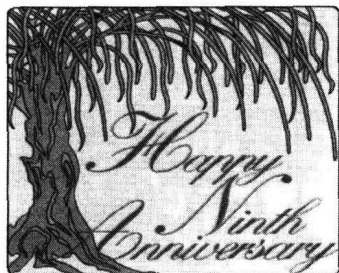 Happy
Ninth
Anniversary